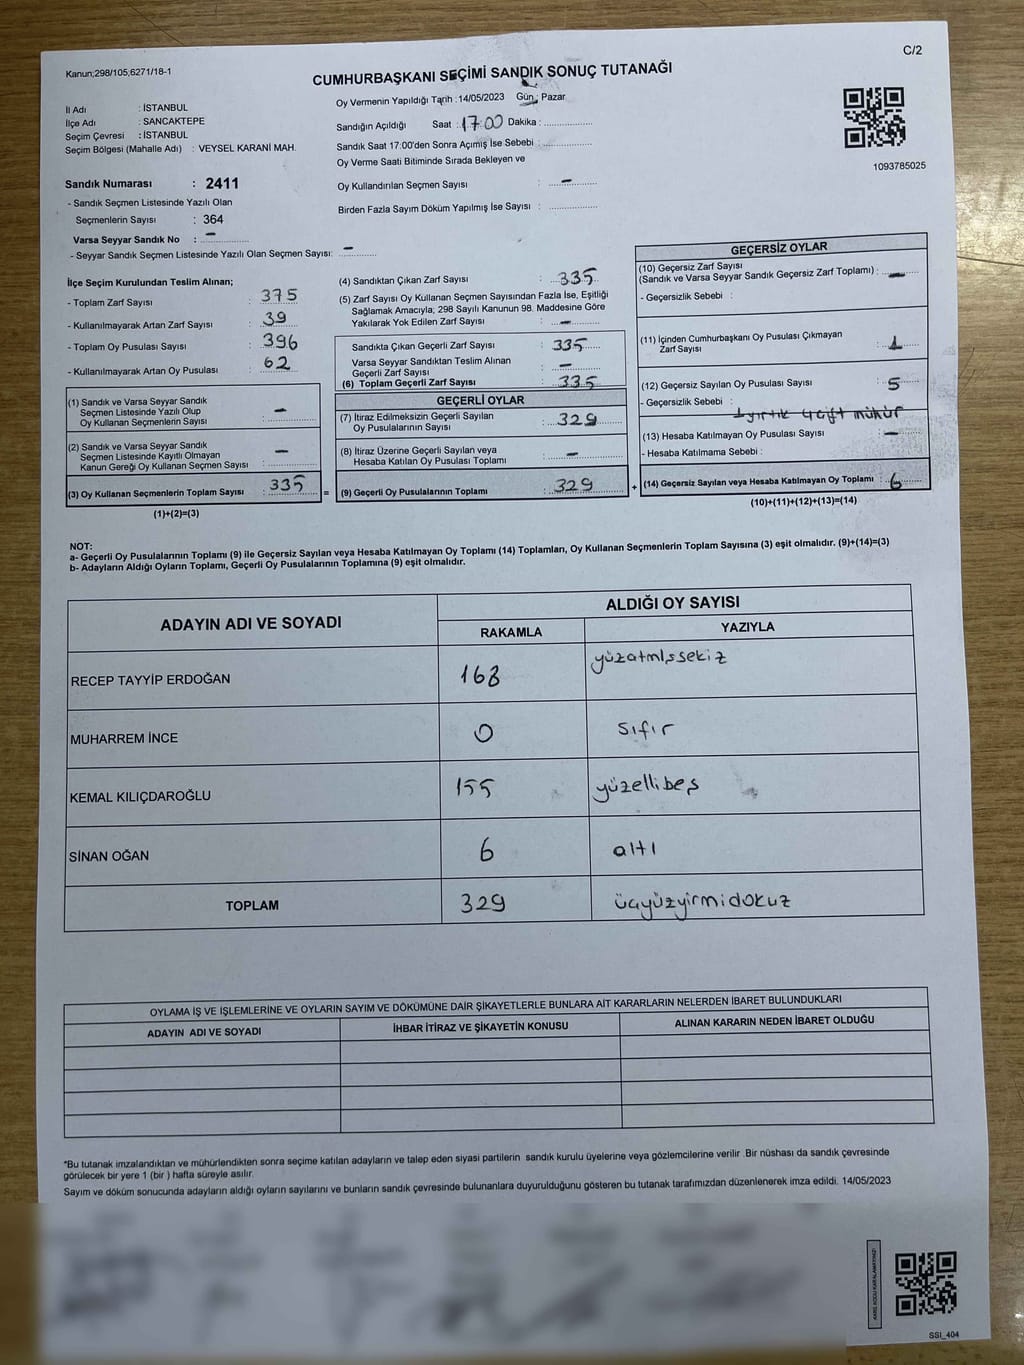 C/2
Kanun;298/105,6271/18-1
CUMHURBAŞKANI SEÇİMİ SANDIK SONUÇ TUTANAĞI
İl Adı : İSTANBUL
İlçe Adı : SANCAKTEPE
Seçim Çevresi : İSTANBUL
Seçim Bölgesi (Mahalle Adı) : VEYSEL KARANİ MAH.
Sandık Numarası : 2411
- Sandık Seçmen Listesinde Yazılı Olan
Seçmenlerin Sayısı : 364
Varsa Seyyar Sandık No : -
- Seyyar Sandık Seçmen Listesinde Yazılı Olan Seçmen Sayısı: -
Oy Vermenin Yapıldığı Tarih : 14/05/2023 Gün : Pazar
Sandığın Açıldığı Saat : 17:00 Dakika :
Sandık Saat 17:00'den Sonra Açımış İse Sebebi :
Oy Verme Saati Bitiminde Sırada Bekleyen ve
Oy Kullandırılan Seçmen Sayısı : -
Birden Fazla Sayım Döküm Yapılmış İse Sayısı :
1093785025
İlçe Seçim Kurulundan Teslim Alınan;
- Toplam Zarf Sayısı : 375
- Kullanılmayarak Artan Zarf Sayısı : 39
- Toplam Oy Pusulası Sayısı : 396
- Kullanılmayarak Artan Oy Pusulası : 62
(1) Sandık ve Varsa Seyyar Sandık
Seçmen Listesinde Yazılı Olup
Oy Kullanan Seçmenlerin Sayısı : -
(2) Sandık ve Varsa Seyyar Sandık
Seçmen Listesinde Kayıtlı Olmayan
Kanun Gereği Oy Kullanan Seçmen Sayısı : -
(3) Oy Kullanan Seçmenlerin Toplam Sayısı : 335 =
(1)+(2)=(3)
(4) Sandıktan Çıkan Zarf Sayısı : 335
(5) Zarf Sayısı Oy Kullanan Seçmen Sayısından Fazla İse, Eşitliği
Sağlamak Amacıyla; 298 Sayılı Kanunun 98. Maddesine Göre
Yakılarak Yok Edilen Zarf Sayısı : -
Sandıkta Çıkan Geçerli Zarf Sayısı : 335
Varsa Seyyar Sandıktan Teslim Alınan
Geçerli Zarf Sayısı : -
(6) Toplam Geçerli Zarf Sayısı : 335
GEÇERLİ OYLAR
(7) İtiraz Edilmeksizin Geçerli Sayılan
Oy Pusulalarının Sayısı : 329
(8) İtiraz Üzerine Geçerli Sayılan veya
Hesaba Katılan Oy Pusulası Toplamı : -
(9) Geçerli Oy Pusulalarının Toplamı : 329 +
GEÇERSİZ OYLAR
(10) Geçersiz Zarf Sayısı
(Sandık ve Varsa Seyyar Sandık Geçersiz Zarf Toplamı) : -
- Geçersizlik Sebebi :
(11) İçinden Cumhurbaşkanı Oy Pusulası Çıkmayan
Zarf Sayısı : 1
(12) Geçersiz Sayılan Oy Pusulası Sayısı : 5
- Geçersizlik Sebebi :
1 yırtık 4 çift mühür
(13) Hesaba Katılmayan Oy Pusulası Sayısı : -
- Hesaba Katılmama Sebebi :
(14) Geçersiz Sayılan veya Hesaba Katılmayan Oy Toplamı : 6
(10)+(11)+(12)+(13)=(14)
NOT:
a- Geçerli Oy Pusulalarının Toplamı (9) ile Geçersiz Sayılan veya Hesaba Katılmayan Oy Toplamı (14) Toplamları, Oy Kullanan Seçmenlerin Toplam Sayısına (3) eşit olmalıdır. (9)+(14)=(3)
b- Adayların Aldığı Oyların Toplamı, Geçerli Oy Pusulalarının Toplamına (9) eşit olmalıdır.
ADAYIN ADI VE SOYADI
ALDIĞI OY SAYISI
RAKAMLA YAZIYLA
RECEP TAYYİP ERDOĞAN 168 yüzatmışsekiz
MUHARREM İNCE 0 sıfır
KEMAL KILIÇDAROĞLU 155 yüzellibeş
SİNAN OĞAN 6 altı
TOPLAM 329 üçyüzyirmidokuz
OYLAMA İŞ VE İŞLEMLERİNE VE OYLARIN SAYIM VE DÖKÜMÜNE DAİR ŞİKAYETLERLE BUNLARA AİT KARARLARIN NELERDEN İBARET BULUNDUKLARI
ADAYIN ADI VE SOYADI İHBAR İTİRAZ VE ŞİKAYETİN KONUSU ALINAN KARARIN NEDEN İBARET OLDUĞU
*Bu tutanak imzalandıktan ve mühürlendikten sonra seçime katılan adayların ve talep eden siyasi partilerin sandık kurulu üyelerine veya gözlemcilerine verilir .Bir nüshası da sandık çevresinde
görülecek bir yere 1 (bir ) hafta süreyle asılır.
Sayım ve döküm sonucunda adayların aldığı oyların sayılarını ve bunların sandık çevresinde bulunanlara duyurulduğunu gösteren bu tutanak tarafımızdan düzenlenerek imza edildi. 14/05/2023
KARE KODU KARALAMAYINIZ!
SSI_404